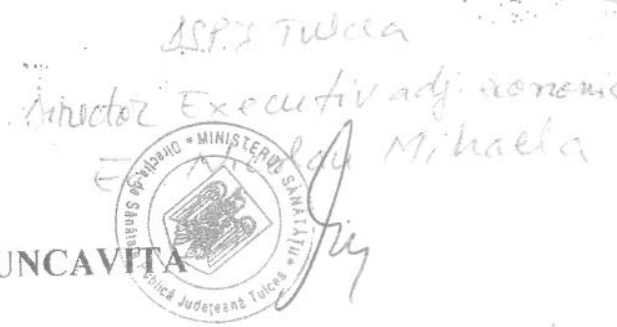 DSPJ Tulcea
Director Executiv adj
Ec. Nicolau Mihaela
* MINISTERUL SĂNĂTĂȚII *
Direcția de Sănătate Publică Județeană Tulcea
UNCAVITA